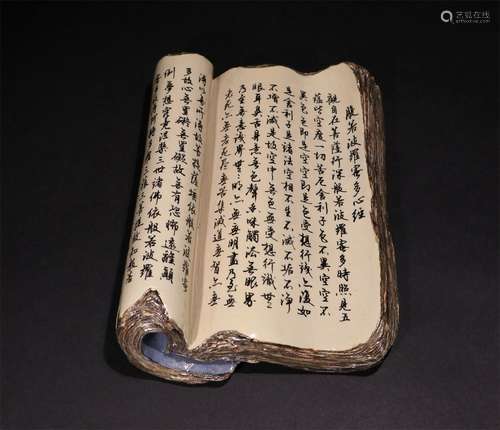 般若波羅密多心經
觀自在菩薩行深般若波羅密多時照見五
蘊皆空度一切苦厄舍利子色不異空空不
異色色即是空空即是色受想行識亦復如
是舍利子是諸法空相不生不滅不垢不淨
不增不減是故空中無色無受想行識無
眼耳鼻舌身意無色聲香味觸法無眼界
乃至無意識界無無明亦無無明盡乃至無
老死亦無老死盡無苦集滅道無智亦無
得以無所得故菩提薩埵依般若波羅密
多故心無罣礙無罣礙故無有恐怖遠離顛
倒夢想究竟涅槃三世諸佛依般若波羅
艺狐在线